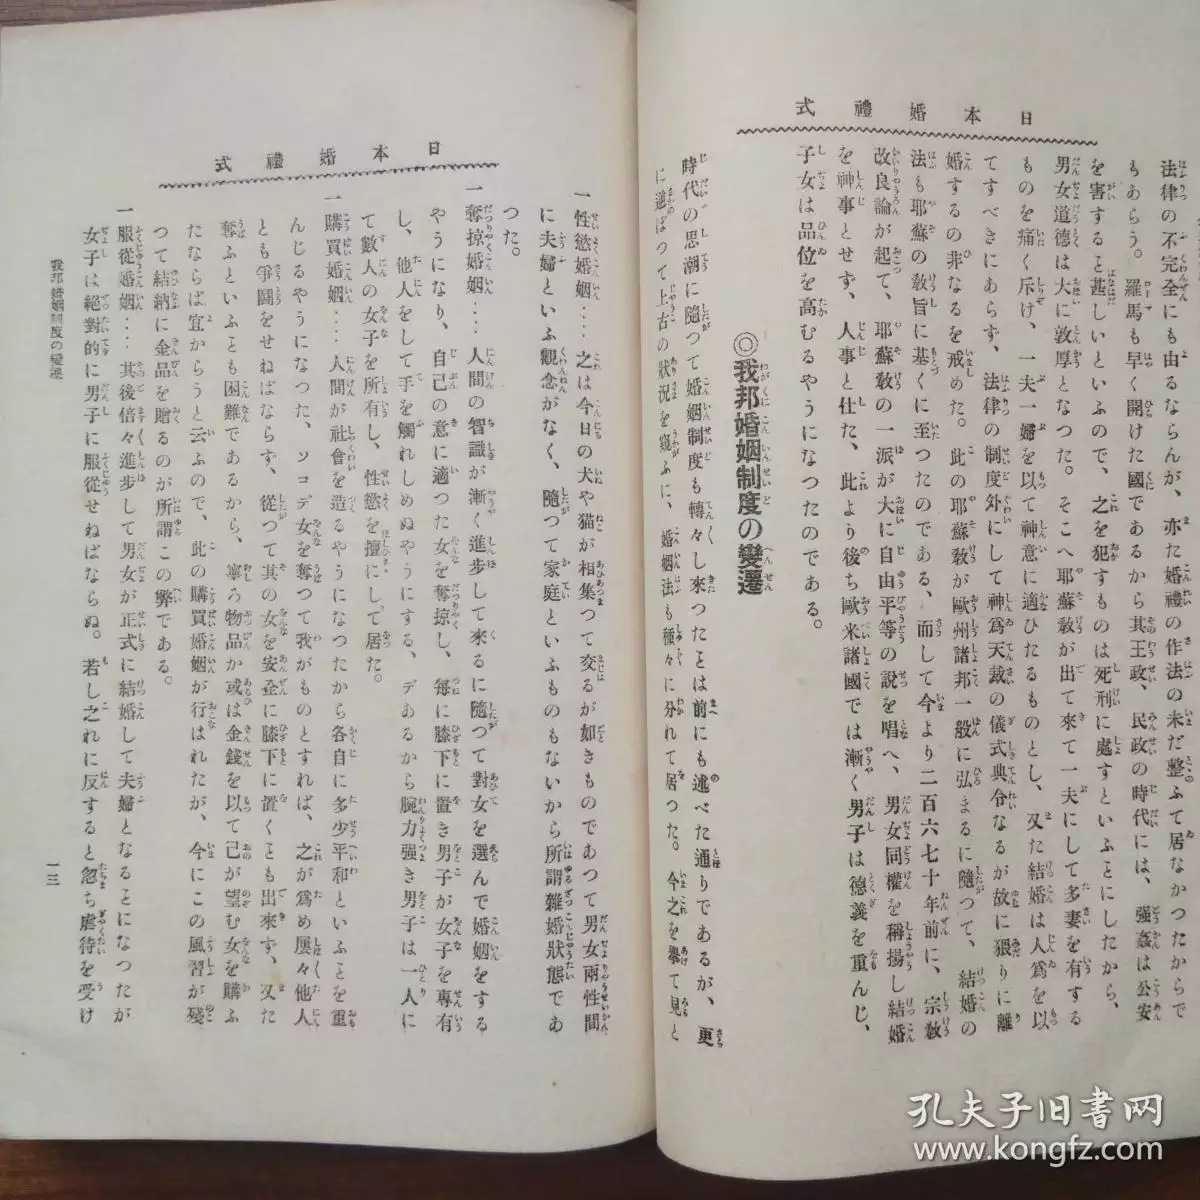 日本婚禮式
法律の不完全にも由るならんが、亦た婚禮の作法の未だ整ふて居なかつたからで
もあらう。羅馬も早く開けた國であるから其王政、民政の時代には、强姦は公安
を害すること甚しいといふので、之を犯すものは死刑に處すといふことにしたから、
男女道德は大に敦厚となつた。そこへ耶蘇敎が出て來て一夫にして多妻を有する
ものを痛く斥け、一夫一婦を以て神意に適ひたるものとし、又た結婚は人爲を以
てすべきにあらず、法律の制度外にして神爲天裁の儀式典令なるが故に猥りに離
婚するの非なるを戒めた。此の耶蘇敎が歐州諸邦一般に弘まるに隨つて、結婚の
法も耶蘇の敎旨に基くに至つたのである、而して今より二百六七十年前に、宗敎
改良論が起て、耶蘇敎の一派が大に自由平等の説を唱へ、男女同權を稱揚し結婚
を神事とせず、人事と仕た、此より後ち歐米諸國では漸く男子は德義を重んじ、
子女は品位を高むるやうになつたのである。
◎我邦婚姻制度の變遷
時代の思潮に隨つて婚姻制度も轉々し來つたことは前にも述べた通りであるが、更
に遡ぼつて上古の狀況を窺ふに、婚姻法も種々に分れて居つた。今之を擧て見と
日本婚禮式
一性慾婚姻‥‥之は今日の犬や猫が相集つて交るが如きものであつて男女兩性間
に夫婦といふ觀念がなく、隨つて家庭といふものもないから所謂雜婚狀態であ
つた。
一奪掠婚姻‥‥人間の智識が漸く進步して來るに隨つて對女を選んで婚姻をする
やうになり、自己の意に適つた女を奪掠し、每に膝下に置き男子が女子を專有
し、他人をして手を觸れしめぬやうにする、デあるから腕力强き男子は一人に
て數人の女子を所有し、性慾を擅にして居た。
一購買婚姻‥‥人間が社會を造るやうになつたから各自に多少平和といふことを重
んじるやうになつた、ソコデ女を奪つて我がものとすれば、之が爲め屢々他人
とも爭鬪をせねばならず、從つて其の女を安全に膝下に置くことも出來ず、又た
奪ふといふことも困難であるから、寧ろ物品か或は金錢を以つて己が望む女を購ふ
たならば宜からうと云ふので、此の購買婚姻が行はれたが、今にこの風習が殘
つて結納に金品を贈るのが所謂この弊である。
一服從婚姻‥‥其後倍々進步して男女が正式に結婚して夫婦となることになつたが
女子は絕對的に男子に服從せねばならぬ。若し之れに反すると忽ち虐待を受け
我邦婚姻制度の變遷
一三
孔夫子旧书网
www.kongfz.com